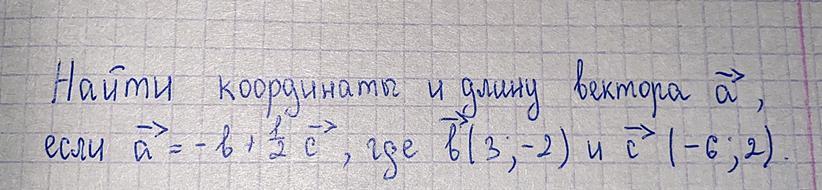 Найти координаты и длину вектора a⃗,
если a⃗ = -b + 1/2 c⃗, где b⃗(3;-2) и c⃗(-6;2).